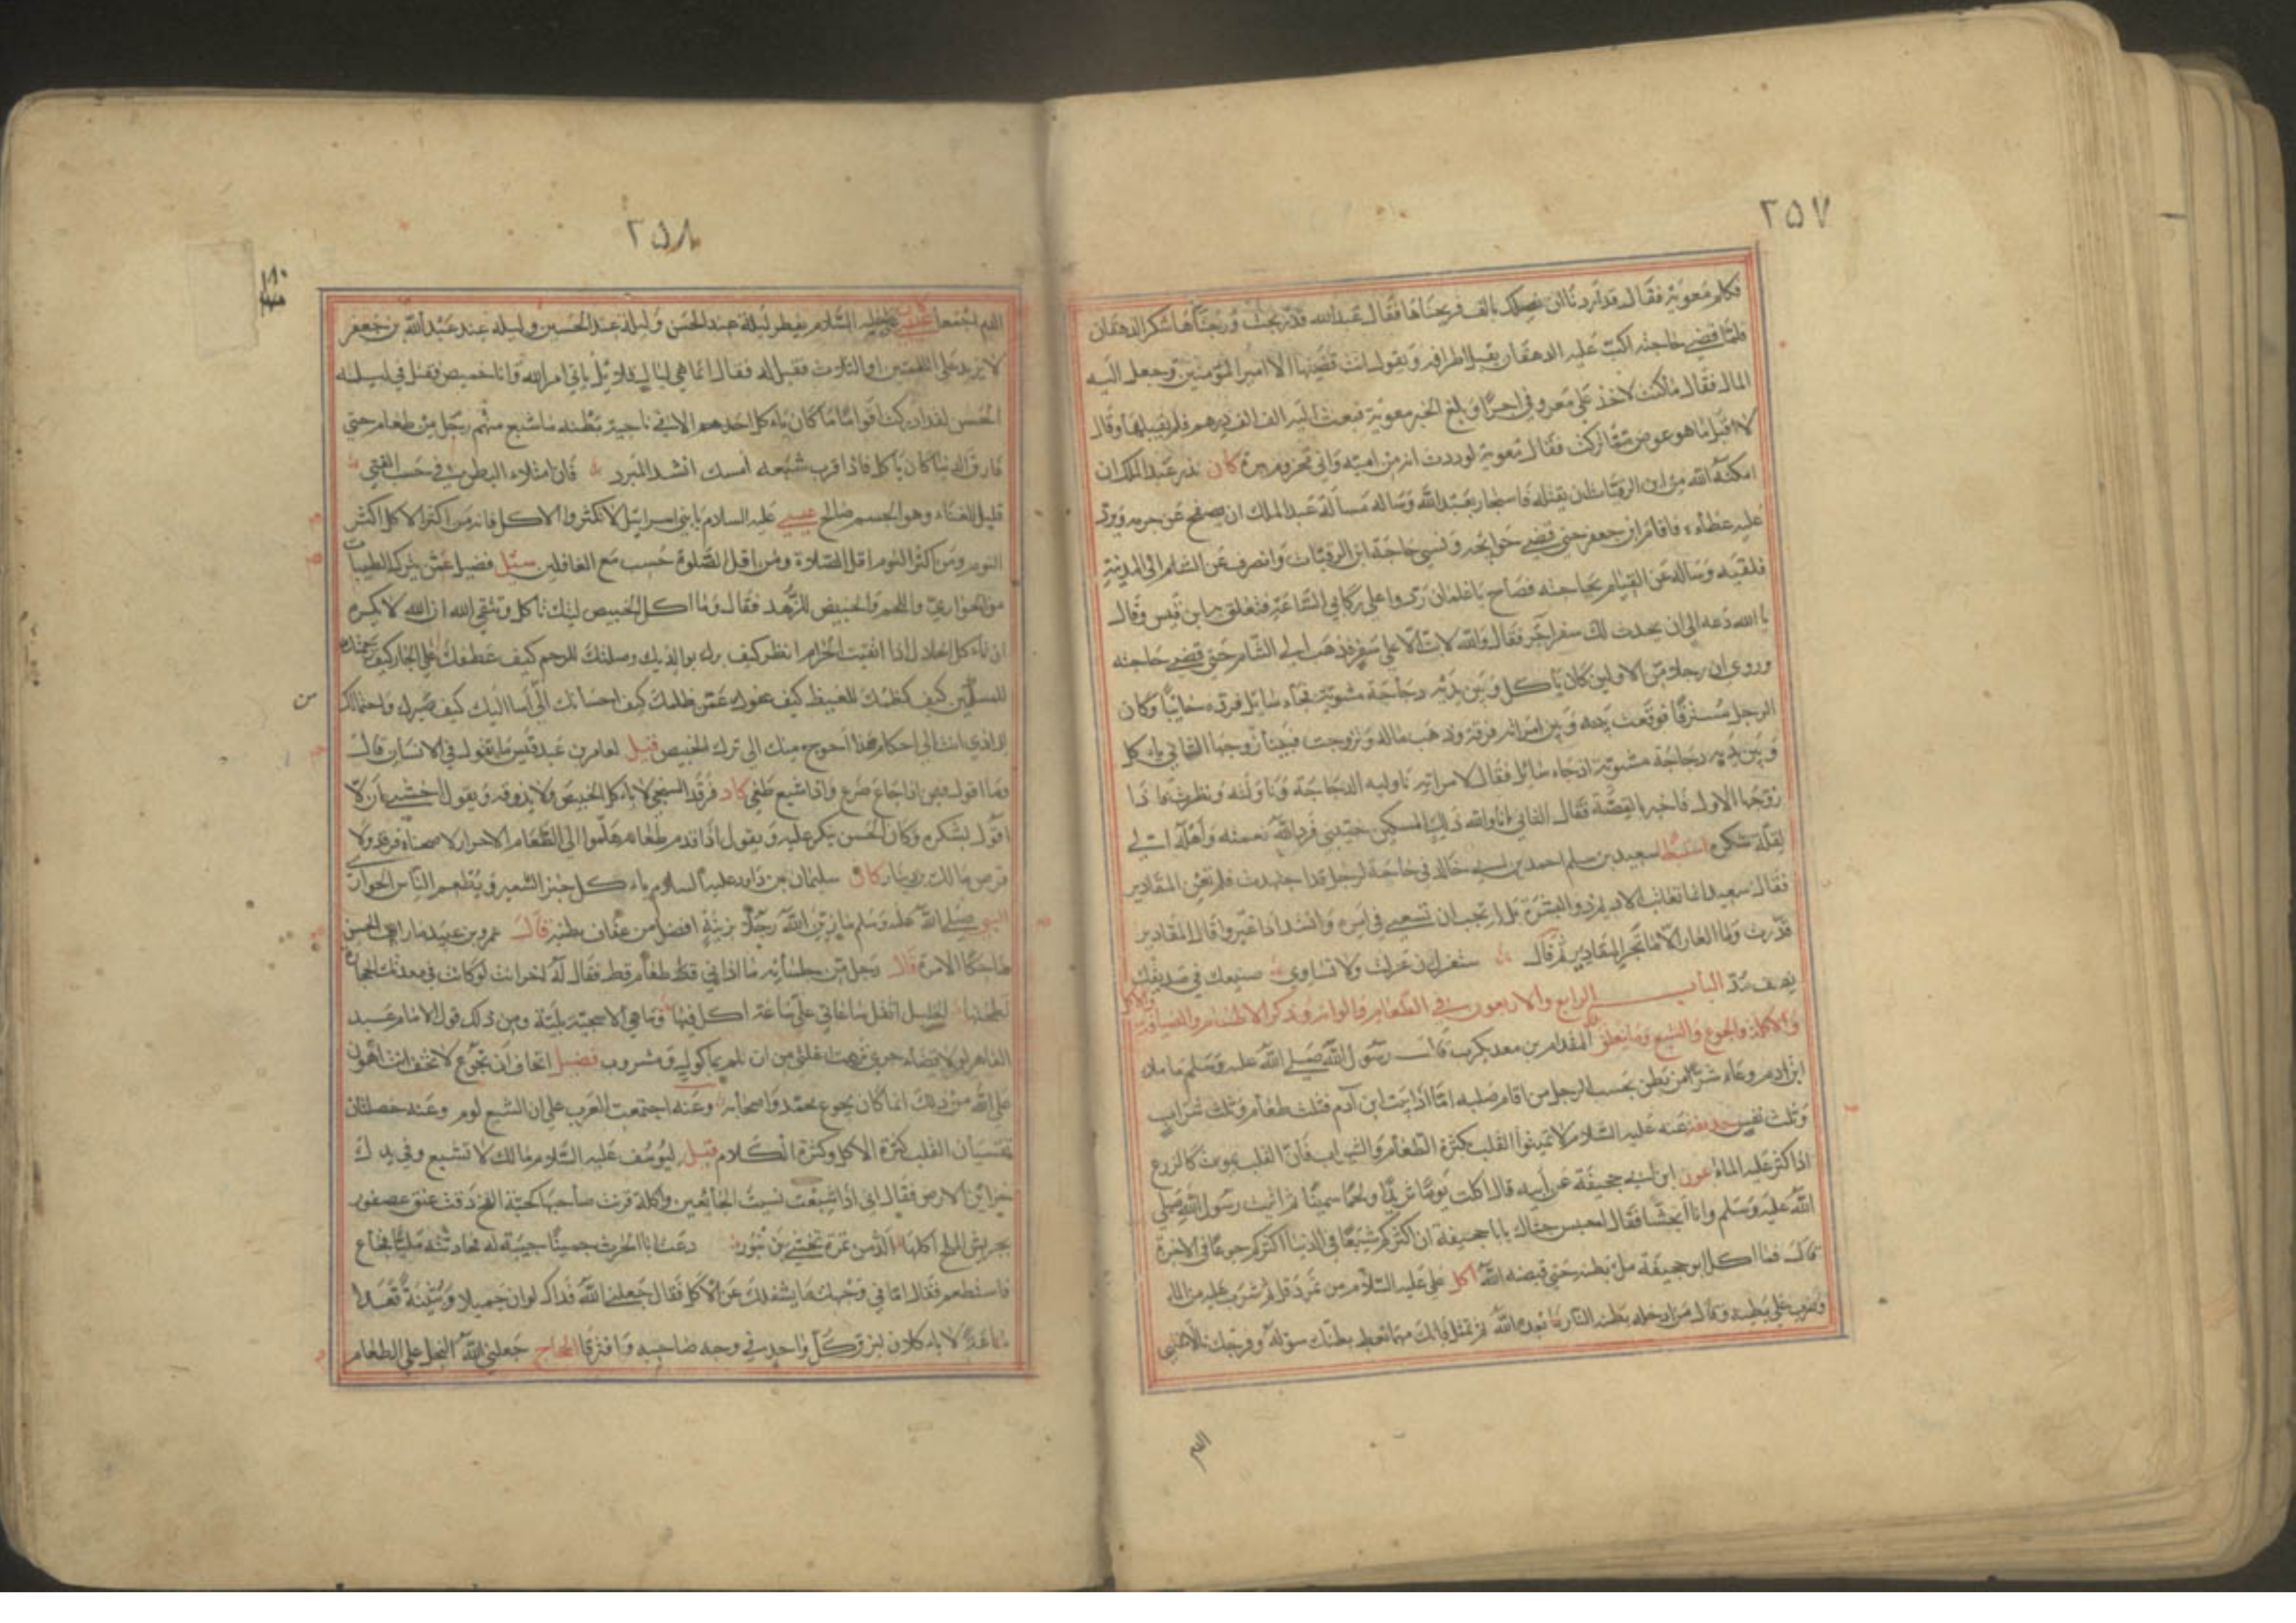 ٢٥٧
فكلم معوية فقال قد أردنا ان نصلك بالف فربحناها فقال عبد الله قد ربحت وربحناها شكر الدهقان
فلما قضى حاجته اكب عليه الدهقان يقبل اطرافه ويقول انت قضيتها الا امير المؤمنين وحمل اليه
المال فقال ما كنت لاخذ على معروفي اجرا وبلغ الخبر معوية فبعث اليه الف الف درهم فلم يقبلها وقال
لا اقبل ما هو عوض عما تركت فقال معوية لوددت انه من امية واني مخزوم ببرة كان نذر عبد الملك ان
امكنه الله من ابن الرقيات ان يقتله فاستجار بعبد الله وساله مسألة عبد الملك ان يصفح عن جرمه ويرد
عليه عطاءه فاقام ابن جعفر حتى قضى حوائجه ونسي حاجة ابن الرقيات وانصرف عن الشام الى المدينة
فلقيه وساله عن القيام بحاجته فصاح يا غلمان ردوا علي ركابي الساعة فتعلق بها ابن قيس وقال
يا الله دعه الى ان يحدث لك سفر آخر فقال والله لا بت الا على سفر فذهب الى الشام حتى قضى حاجته
وروى ان رجلا من الاولين كان يأكل وبين يديه دجاجة مشوية فجاء سائل فرده خائبا وكان
الرجل مسترفا فوقعت بينه وبين امراته فرقة وذهب ماله وتزوجت فبينا زوجها الثاني يأكل
وبين يديه دجاجة مشوية اذ جاءه سائل فقال لامراته ناوليه الدجاجة فناولته ونظرت فاذا
زوجها الاول فاخبرته القصة فقال الثاني انا والله ذلك المسكين خيبني فرد الله نعمته واهله الي
لقلة شكره استبطأ سعيد بن سلم احمد بن ابي خالد في حاجة لرجل قد اجتهدت فلم تعن المقادير
فقال سعيد انما تعاتب الاديم ذو البشرة بل ارتجب ان تسعى في امره وانشد اذا عيروا قالوا المقادير
قدرت وما العار الا ما تجر المقادير ثم قال شتمان ان عزلت ولا تساوي صنيعك في صديقك
نصف مد الباب الرابع والاربعون في الطعام والوانه وذكر الاطعام والضيافة والاكل
والاكلة والجوع والشبع وما يتعلق المقدام بن معديكرب قال رسول الله صلى الله عليه وسلم ما ملأ
ابن ادم وعاء شرا من بطن بحسب الرجل من اقام صلبه اما اذا ابيت ابن آدم فثلث طعام وثلث شراب
وثلث نفس حذيفة عنه عليه السلام لا تميتوا القلب بكثرة الطعام والشراب فان القلب يموت كالزرع
اذا كثر عليه الماء عون ابن ابي جحيفة عن ابيه قال اكلت يوما ثريدا ولحما سمينا ثم اتيت رسول الله صلى
الله عليه وسلم وانا اتجشا فقال احبس جشاك يا با جحيفة ان اكثركم شبعا في الدنيا اكثركم جوعا في الاخرة
قال فما اكل ابو جحيفة مل بطنه حتى قبضه الله اكل علي عليه السلام من تمر دقل ثم شرب عليه من الماء
وضرب على بطنه وقال من ادخله بطنه النار فابعده الله ثم تمثل فانك مهما تعط بطنك سوله وفرجك نالا منتهى
الذم
٢٥٨
الذم اجمعا علي عليه السلام يفطر ليلة عند الحسن وليلة عند الحسين وليلة عند عبد الله بن جعفر
لا يزيد على اللقمتين او الثلاث فقيل له فقال انما هي ليال قلائل ياتي امر الله وانا خميص فقتل في ليلته
الحسن لقد ادركت اقواما ما كان ياكل احدهم الا في ناحية بطنه ما شبع منهم رجل من طعام حتى
فارق الدنيا كان يأكل فاذا قرب شبعه امسك انشد المبرد فان امتلاء البطن في حسب الفتى
قليل الغناء وهو الجسم صالح عيسى عليه السلام يا بني اسرائيل لا تكثروا الاكل فانه من اكثر الاكل اكثر
النوم ومن اكثر النوم اقل الصلاة ومن اقل الصلوة حسب مع الغافلين سئل فضيل عمن يترك الطيبات
من الحواري واللحم والخبيص للزهد فقال وما اكل الخبيص ليتك تأكل وتتقي الله ان الله لا يكره
ان تأكل الحلال اذا اتقيت الحرام انظر كيف برك بوالديك وصلتك للرحم كيف عطفك على الجار كيف رحمتك
للمسلمين كيف كظمك للغيظ كيف عفوك عمن ظلمك كيف احسانك الى من اسا اليك كيف صبرك واحتمالك
للاذى انت الى احكام هذا احوج منك الى ترك الخبيص قيل لعامر بن عبد قيس ما تقول في الانسان قال
وما اقول فيمن اذا جاع ضرع واذا شبع طغى كان فرقد السبخي لا يأكل الخبيص ولا يذوقه ويقول اخشى ان لا
اقوم بشكره وكان الحسن ينكر عليه ويقول اذا قدم طعامه هلموا الى الطعام الاحرار لا صحناة فرقد ولا
قرص مالك بن دينار كان سليمان بن داود عليه السلام ياكل خبز الشعير ويطعم الناس الحواري
النبي صلى الله عليه وسلم ما زين الله رجلا بزينة افضل من عفاف بطنه قال عمرو بن عبيد ما رايت الحسن
ضاحكا الا مرة قال رجل من جلسائه ما اذاني قط طعام قط فقال له اخر انت لو كانت في معدتك الحجارة
لطحنتها الخليل اثقل ساعاتي علي ساعة اكل فيها وما هي الا سجية بلية ومن ذلك قول الامام عبد
القاهر لولا قضاء جرى نزهت اغلتي من ان تلم بماكول ومشروب فضيل اتخاف ان تجوع لا تخف انت اهون
على الله من ذلك انما كان يجوع محمد واصحابه وعنه اجتمعت العرب على ان الشبع لوم وعنه خصلتان
تقسيان القلب كثرة الاكل وكثرة الكلام قيل ليوسف عليه السلام مالك لا تشبع وفي يدك
خزائن الارض فقال اني اذا شبعت نسيت الجائعين واكلة قربت صاحبها كحبة الفخ دقت عنق عصفور
بجريش الملح اكلتها الذ من تمرة تحشى بزنبور دعت ابا الحرث جمينا حبيبة له فحادثته مليا فجاع
فاستطعم فقالت اما في وجهك ما يشغلك عن الاكل فقال جعلني الله فداك لو ان جميلا وبثينة قعدا
ساعة لا ياكلان لبزق كل واحد في وجه صاحبه وافترقا الحجاج جعلني الله البخل على الطعام